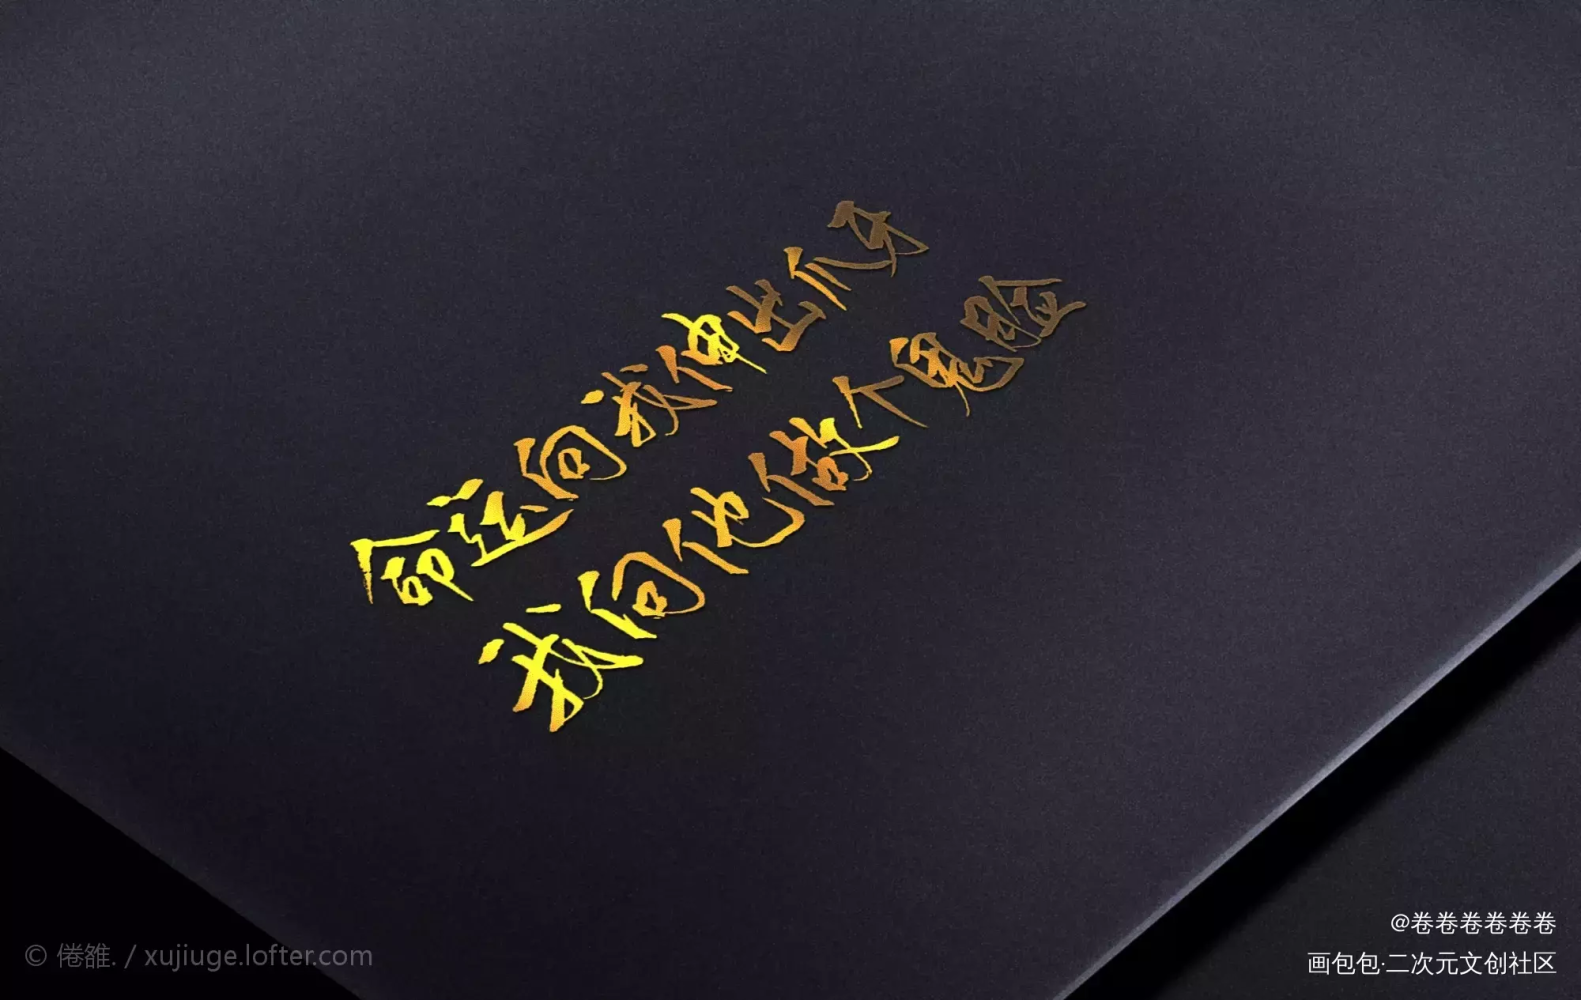 命运向我伸出爪牙
我向他做个鬼脸
@卷卷卷卷卷卷
© 倦雒. / xujiuge.lofter.com
画包包·二次元文创社区